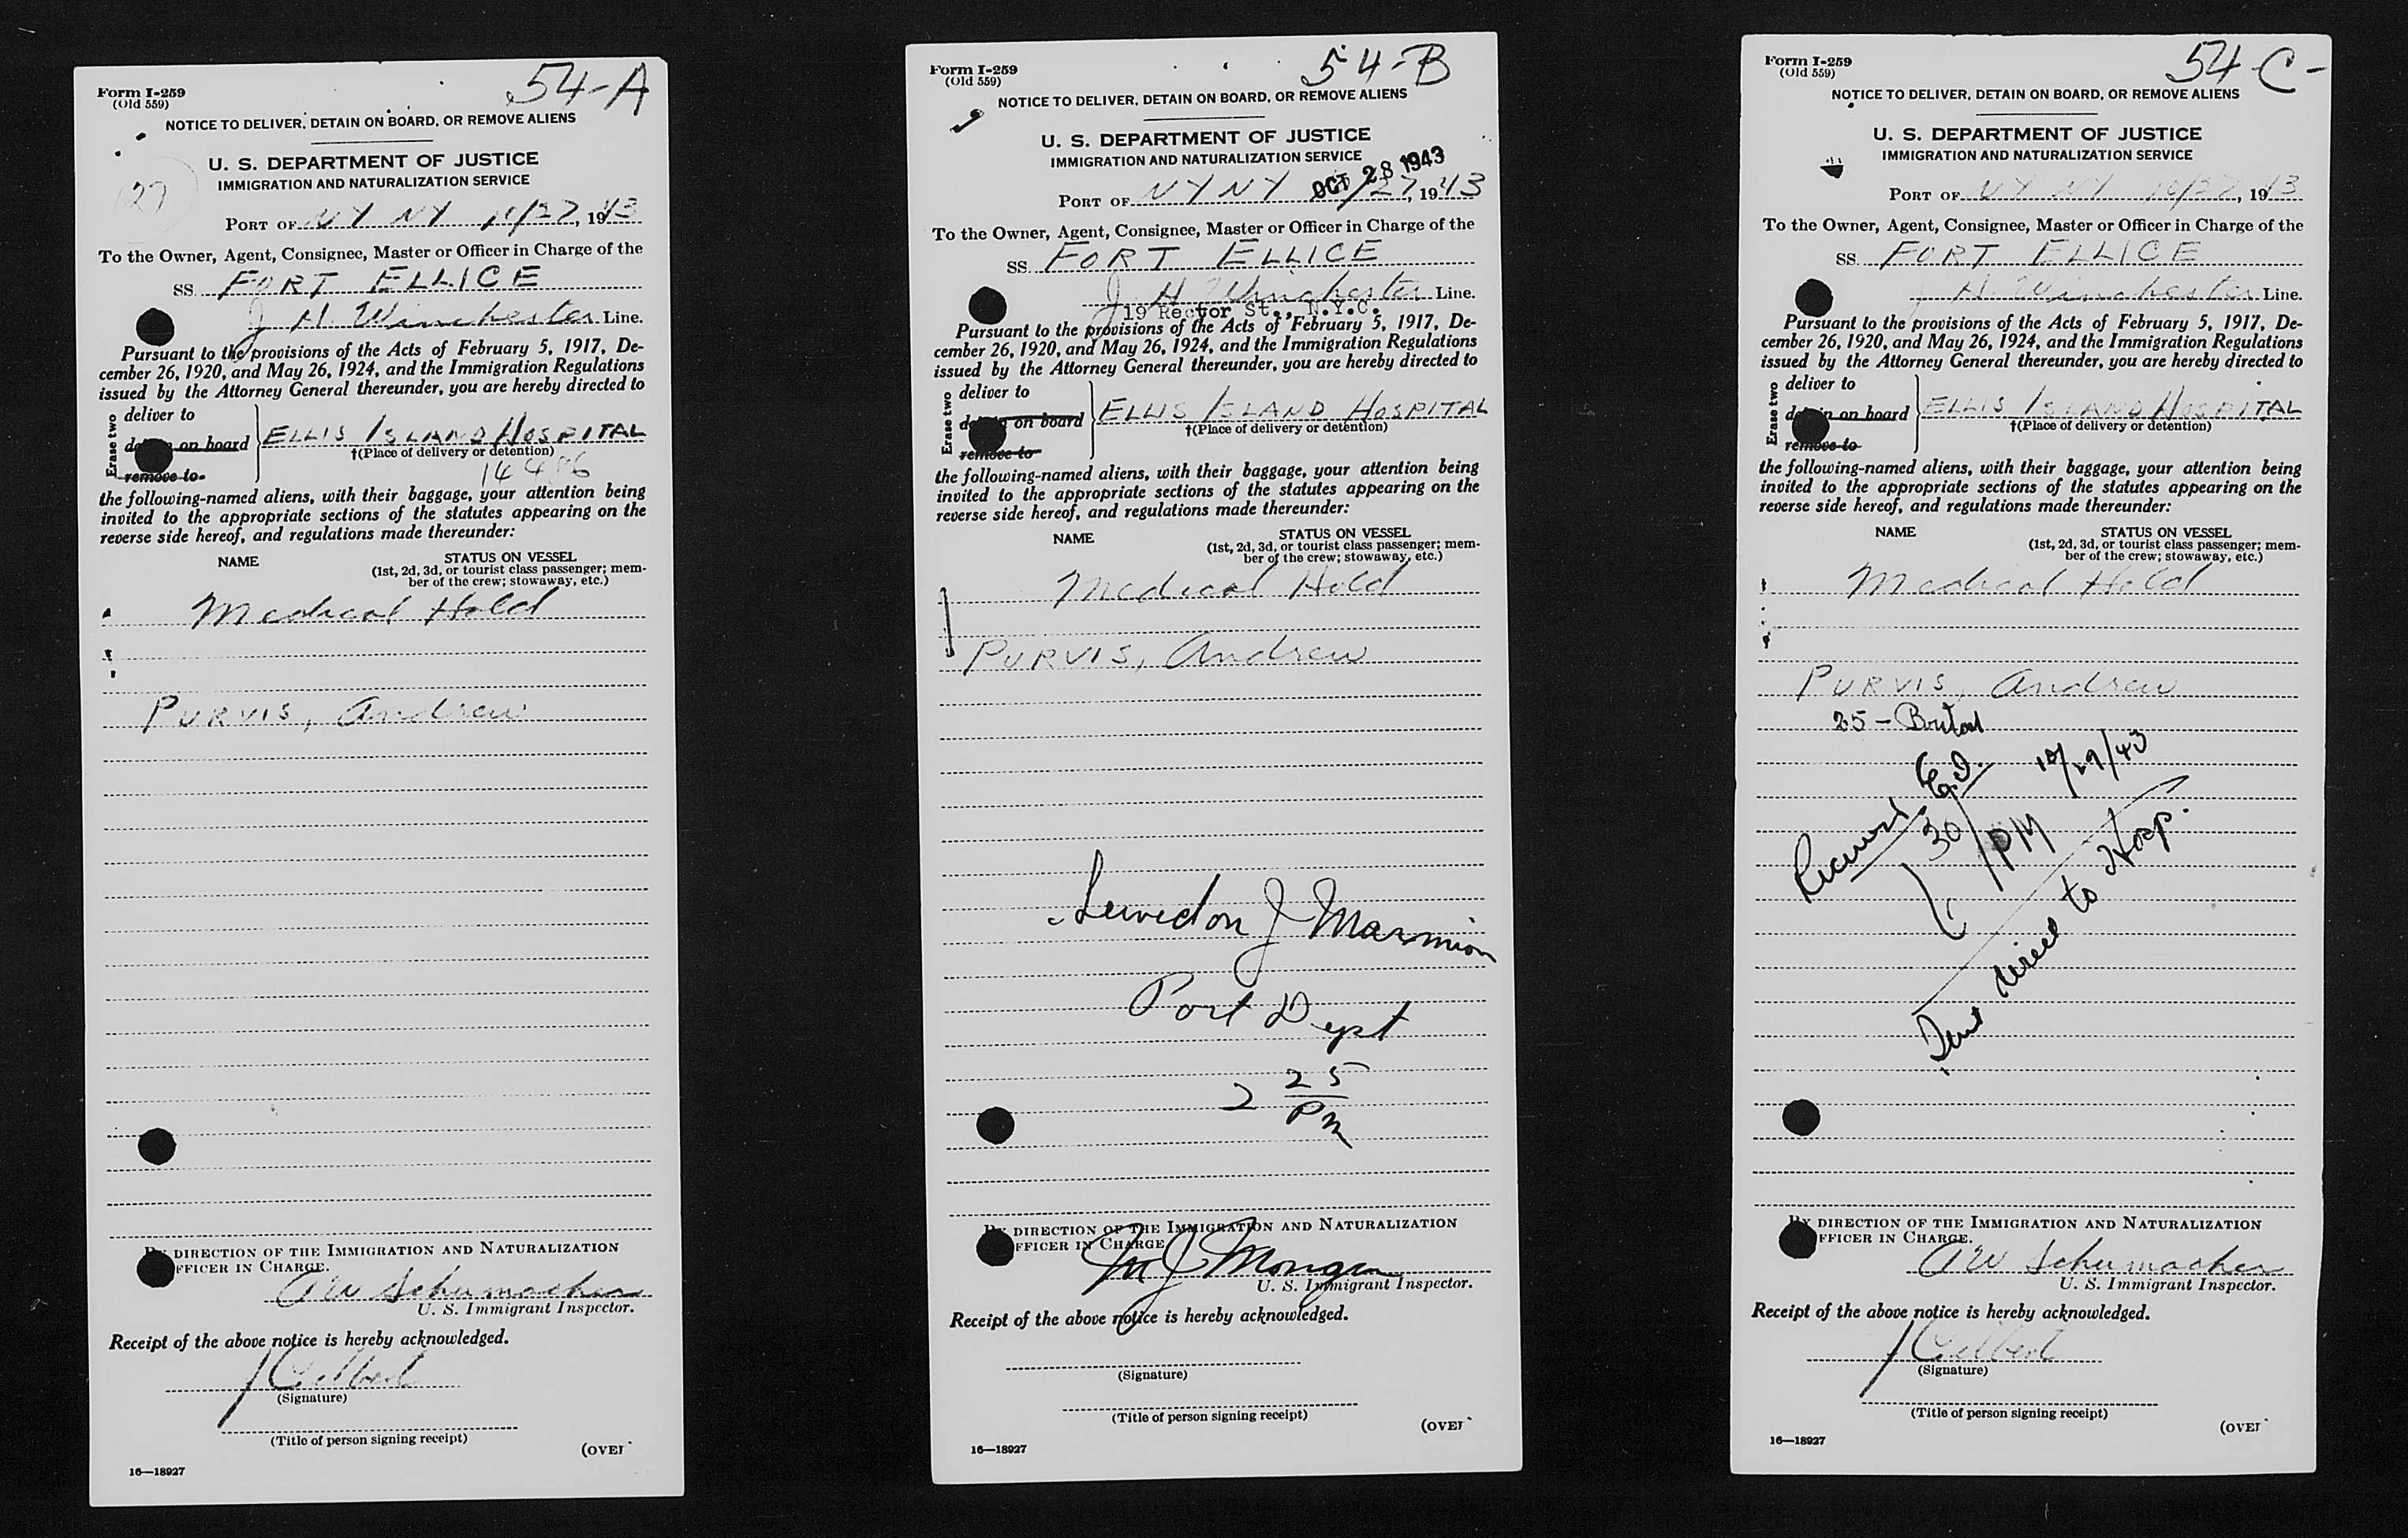 54-A
Form I-259
(Old 559)
NOTICE TO DELIVER, DETAIN ON BOARD, OR REMOVE ALIENS
U. S. DEPARTMENT OF JUSTICE
IMMIGRATION AND NATURALIZATION SERVICE
27
PORT OF NY NY 10/27, 1943
To the Owner, Agent, Consignee, Master or Officer in Charge of the
SS FORT ELLICE
J H. Winchester Line.
Pursuant to the provisions of the Acts of February 5, 1917, De-
cember 26, 1920, and May 26, 1924, and the Immigration Regulations
issued by the Attorney General thereunder, you are hereby directed to
Erase two
deliver to
on board
ELLIS ISLAND HOSPITAL
†(Place of delivery or detention)
remove to
14486
the following-named aliens, with their baggage, your attention being
invited to the appropriate sections of the statutes appearing on the
reverse side hereof, and regulations made thereunder:
NAME
STATUS ON VESSEL
(1st, 2d, 3d, or tourist class passenger; mem-
ber of the crew; stowaway, etc.)
Medical Hold
PURVIS, Andrew
By DIRECTION OF THE IMMIGRATION AND NATURALIZATION
OFFICER IN CHARGE.
AW Schumacher
U. S. Immigrant Inspector.
Receipt of the above notice is hereby acknowledged.
J Gilbert
(Signature)
(Title of person signing receipt)
(OVER
16—18927
54-B
Form I-259
(Old 559)
NOTICE TO DELIVER, DETAIN ON BOARD, OR REMOVE ALIENS
U. S. DEPARTMENT OF JUSTICE
IMMIGRATION AND NATURALIZATION SERVICE
OCT 28 1943
PORT OF NY NY 10/27, 1943
To the Owner, Agent, Consignee, Master or Officer in Charge of the
SS FORT ELLICE
J H Winchester Line.
19 Rector St., N.Y.C.
Pursuant to the provisions of the Acts of February 5, 1917, De-
cember 26, 1920, and May 26, 1924, and the Immigration Regulations
issued by the Attorney General thereunder, you are hereby directed to
Erase two
deliver to
on board
ELLIS ISLAND HOSPITAL
†(Place of delivery or detention)
remove to
the following-named aliens, with their baggage, your attention being
invited to the appropriate sections of the statutes appearing on the
reverse side hereof, and regulations made thereunder:
NAME
STATUS ON VESSEL
(1st, 2d, 3d, or tourist class passenger; mem-
ber of the crew; stowaway, etc.)
Medical Hold
PURVIS, Andrew
J Marmion
Port Dept
2 25 PM
By DIRECTION OF THE IMMIGRATION AND NATURALIZATION
OFFICER IN CHARGE
M J Mongan
U. S. Immigrant Inspector.
Receipt of the above notice is hereby acknowledged.
(Signature)
(Title of person signing receipt)
(OVER
16—18927
54-C-
Form I-259
(Old 559)
NOTICE TO DELIVER, DETAIN ON BOARD, OR REMOVE ALIENS
U. S. DEPARTMENT OF JUSTICE
IMMIGRATION AND NATURALIZATION SERVICE
PORT OF NY NY 10/27, 1943
To the Owner, Agent, Consignee, Master or Officer in Charge of the
SS FORT ELLICE
J H. Winchester Line.
Pursuant to the provisions of the Acts of February 5, 1917, De-
cember 26, 1920, and May 26, 1924, and the Immigration Regulations
issued by the Attorney General thereunder, you are hereby directed to
Erase two
deliver to
detain on board
ELLIS ISLAND HOSPITAL
†(Place of delivery or detention)
remove to
the following-named aliens, with their baggage, your attention being
invited to the appropriate sections of the statutes appearing on the
reverse side hereof, and regulations made thereunder:
NAME
STATUS ON VESSEL
(1st, 2d, 3d, or tourist class passenger; mem-
ber of the crew; stowaway, etc.)
Medical Hold
PURVIS, Andrew
25 -
Received E.I. 10/29/43
30 PM
Sent direct to Hosp.
By DIRECTION OF THE IMMIGRATION AND NATURALIZATION
OFFICER IN CHARGE.
AW Schumacher
U. S. Immigrant Inspector.
Receipt of the above notice is hereby acknowledged.
J Gilbert
(Signature)
(Title of person signing receipt)
(OVER
16—18927